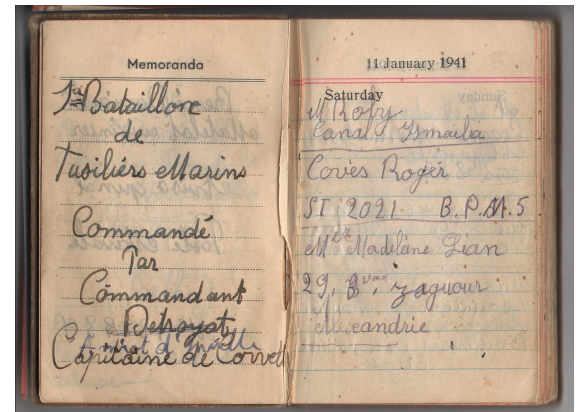 Memoranda
1er Bataillon
de
Fusiliers Marins
Commandé
Par
Commandant
Détroyat
Capitaine de Corvett
11 January 1941
Saturday
Canal Ismailia
Covès Roger
ST 2021. B.P.M.5
Melle Madeleine
29,
Alexandrie